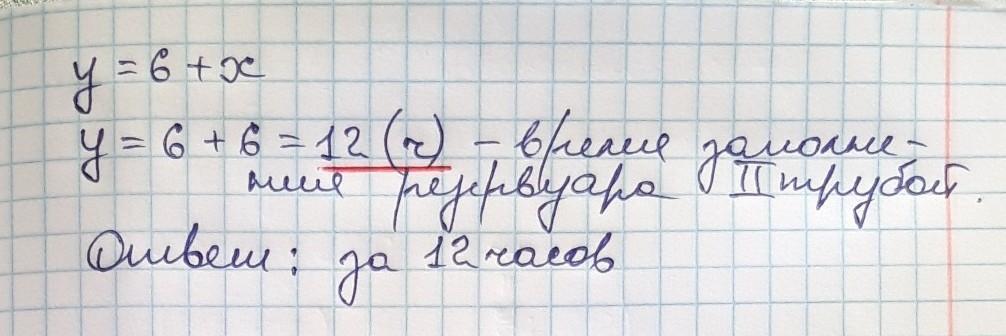 y = 6 + x
y = 6 + 6 = 12 (ч) – время заполне-
ния резервуара II трубой.
Ответ: за 12 часов